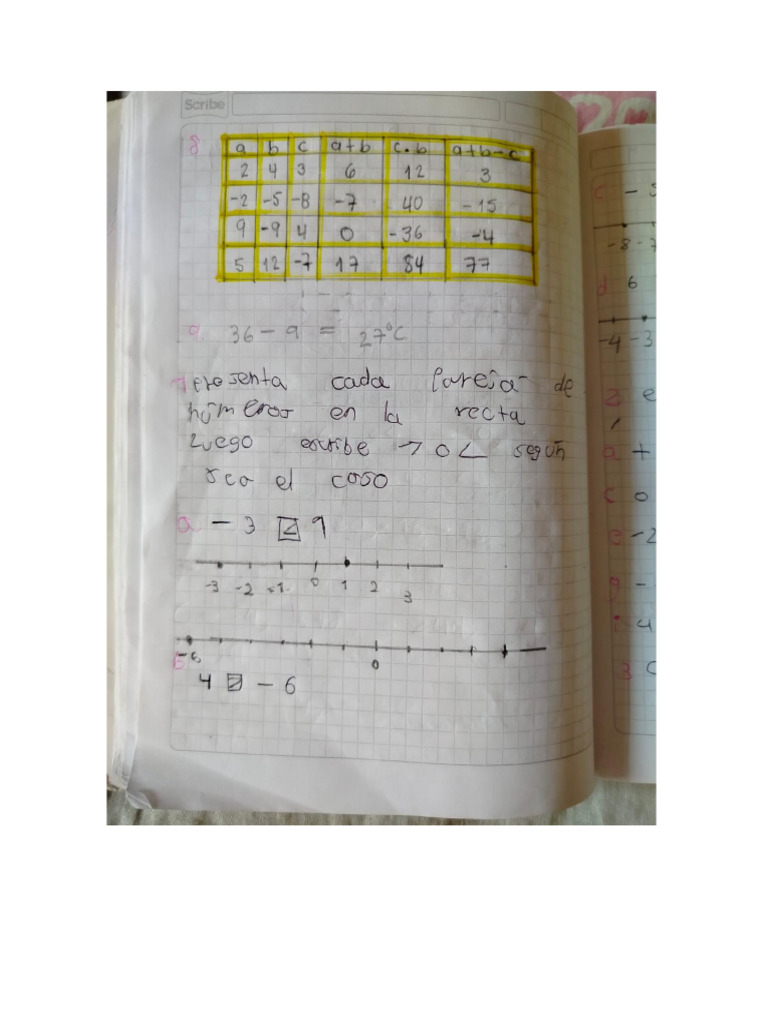 Scribe
8 a b c a+b c.b a+b-c
2 4 3 6 12 3
-2 -5 -8 -7 40 -15
9 -9 4 0 -36 -4
5 12 -7 17 84 77
9. 36 - 9 = 27°C
cada Pareja de
números en la recta
Luego escribe > o < según
sea el caso
a - 3 <
-3 -2 -1 0 1 2 3
-6 0
b
4 > - 6
c
-8 -7
d 6
-4 -3
2 e
a +
c o
e -2
g -
4
3 C